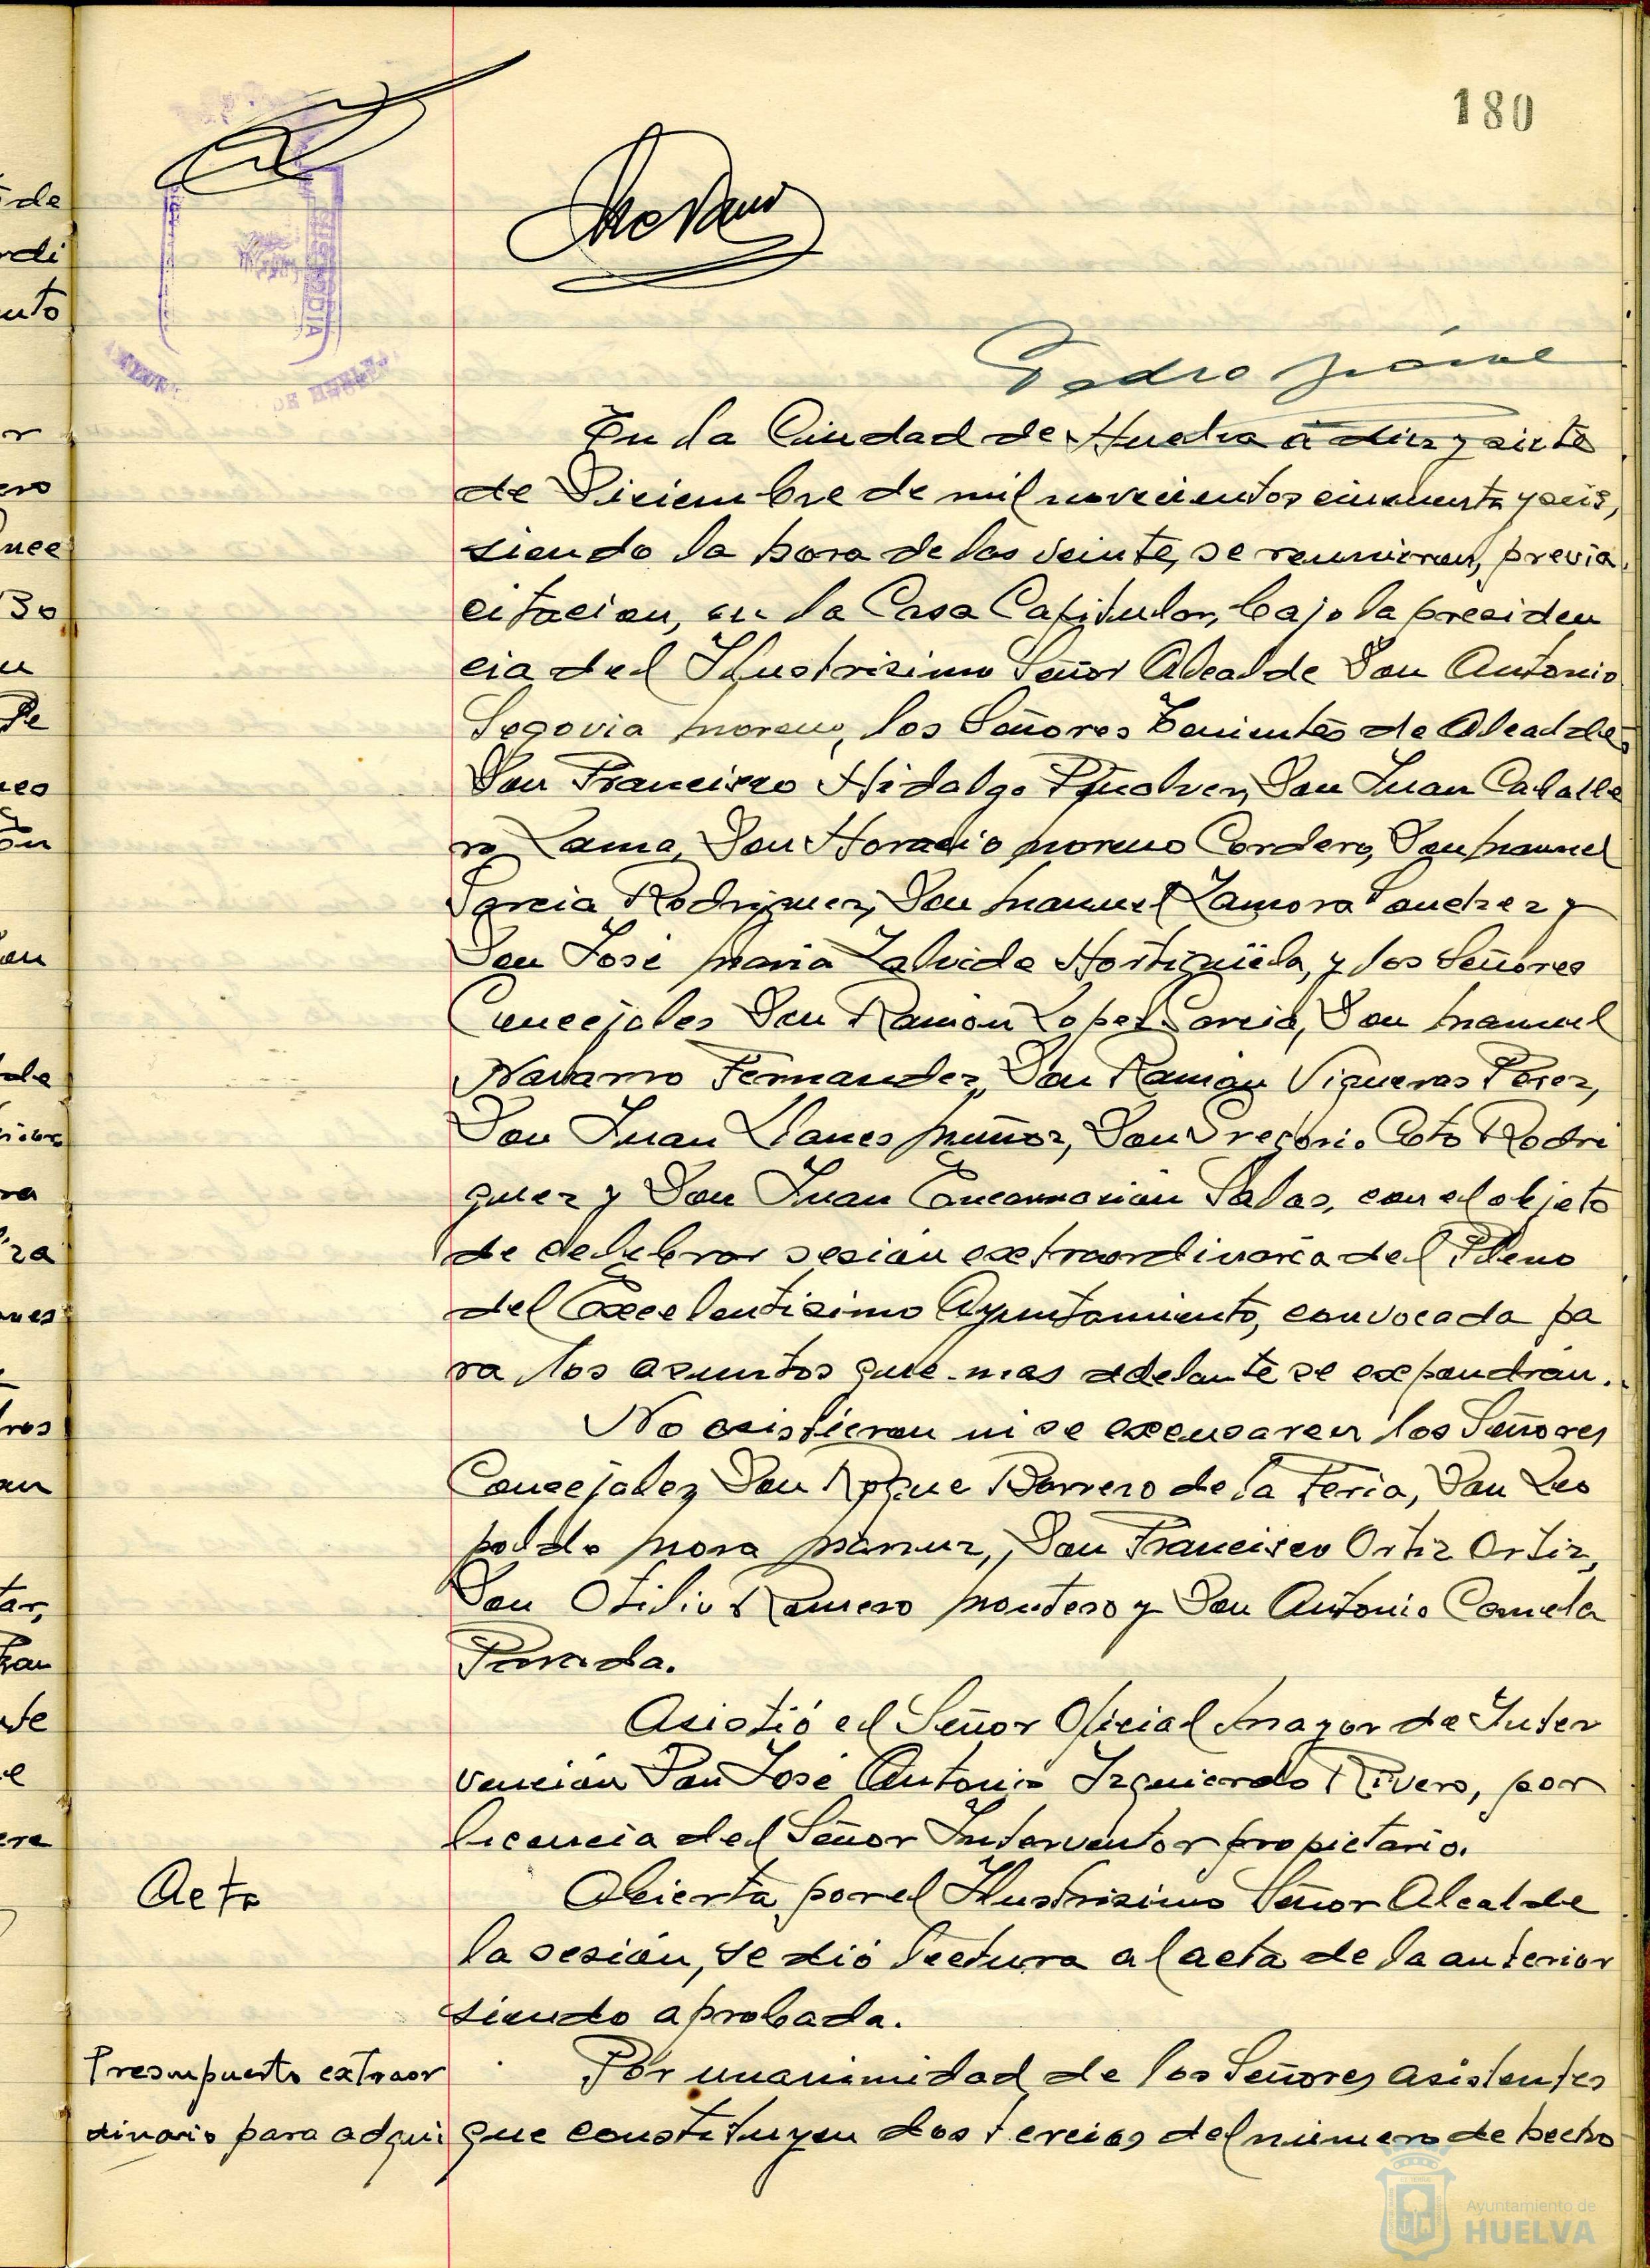 180
Pedro Jaime
En la Ciudad de Huelva a diez y siete
de Diciembre de mil novecientos cincuenta y seis,
siendo la hora de las veinte, se reunieron, previa
citacion, en la Casa Capitular, bajo la presiden
cia del Ilustrisimo Señor Alcalde Don Antonio
Segovia Moreno, los Señores Tenientes de Alcalde,
Don Francisco Hidalgo Don Juan Caballe
ro Lama, Don Horacio Moreno Cordero, Don Manuel
Garcia Rodriguez, Don Manuel Zamora Sanchez y
Don José Maria Zalvide Hortigüela, y los Señores
Concejales Don Ramon Lopez Garcia, Don Manuel
Navarro Fernandez, Don Ramon Vigueras Perez,
Don Juan Llanes Muñoz, Don Gregorio Coto Rodri
guez y Don Juan Encarnacion Salas, con el objeto
de celebrar sesion extraordinaria del Pleno
del Excelentisimo Ayuntamiento, convocada pa
ra los asuntos que mas adelante se expondrán.
No asistieron ni se excusaron los Señores
Concejales Don Roque Borrero de la Feria, Don Leo
poldo Mora Don Francisco Ortiz Ortiz,
Don Otilio Romero Montero y Don Antonio
Parada.
Asistió el Señor Oficial Mayor de Inter
vencion Don José Antonio Izquierdo Rivero, por
licencia del Señor Interventor propietario.
Acta
Abierta por el Ilustrisimo Señor Alcalde
la sesión, se dió lectura al acta de la anterior
siendo aprobada.
Presupuesto extraor
dinario para adqui
Por unanimidad de los Señores asistentes
que constituyen dos tercios del número de hecho
Ayuntamiento de
HUELVA